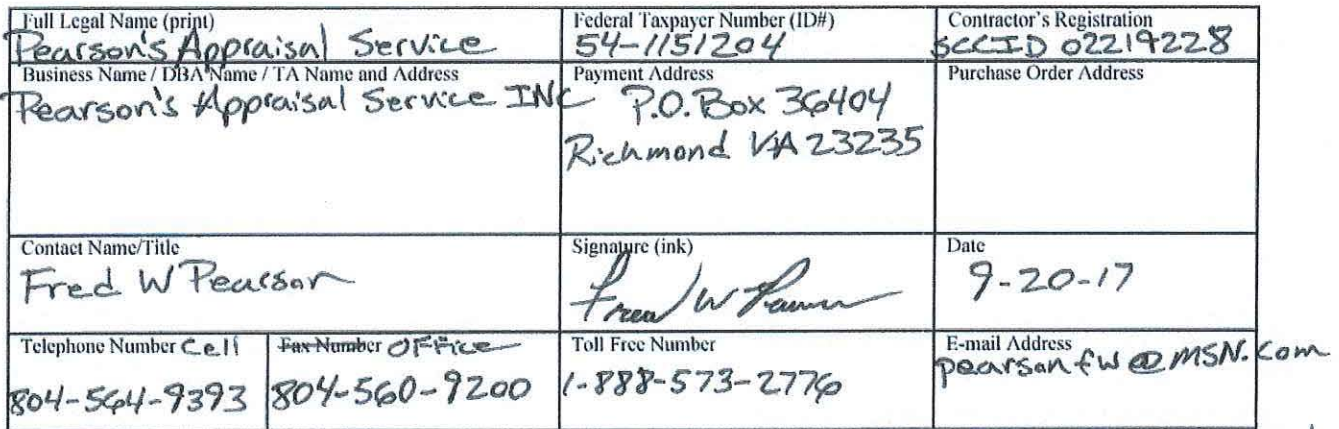 Full Legal Name (print)
Pearson's Appraisal Service
Federal Taxpayer Number (ID#)
54-1151204
Contractor's Registration
SCCID 02219228
Business Name / DBA Name / TA Name and Address
Pearson's Appraisal Service INC
Payment Address
P.O. Box 36404
Richmond VA 23235
Purchase Order Address
Contact Name/Title
Fred W Pearson
Signature (ink)
Fred W Pearson
Date
9-20-17
Telephone Number Cell
804-564-9393
Fax Number OFFice
804-560-9200
Toll Free Number
1-888-573-2776
E-mail Address
pearsonfw@MSN.com